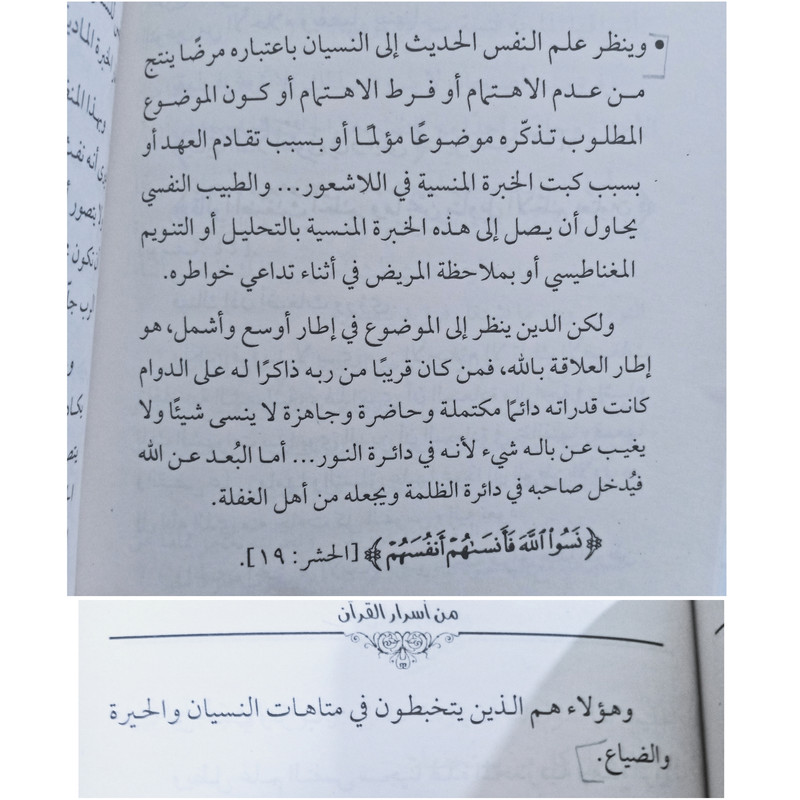 • وينظر علم النفس الحديث إلى النسيان باعتباره مرضًا ينتج
من عدم الاهتمام أو فرط الاهتمام أو كون الموضوع
المطلوب تذكّره موضوعًا مؤلمًا أو بسبب تقادم العهد أو
بسبب كبت الخبرة المنسية في اللاشعور... والطبيب النفسي
يحاول أن يصل إلى هذه الخبرة المنسية بالتحليل أو التنويم
المغناطيسي أو بملاحظة المريض في أثناء تداعي خواطره.
ولكن الدين ينظر إلى الموضوع في إطار أوسع وأشمل، هو
إطار العلاقة بالله، فمن كان قريبًا من ربه ذاكرًا له على الدوام
كانت قدراته دائمًا مكتملة وحاضرة وجاهزة لا ينسى شيئًا ولا
يغيب عن باله شيء لأنه في دائرة النور... أما البُعد عن الله
فيُدخل صاحبه في دائرة الظلمة ويجعله من أهل الغفلة.
﴿نَسُوا۟ ٱللَّهَ فَأَنسَىٰهُمْ أَنفُسَهُمْ﴾ [الحشر: ١٩].
من أسرار القرآن
وهؤلاء هم الذين يتخبطون في متاهات النسيان والحيرة
والضياع.